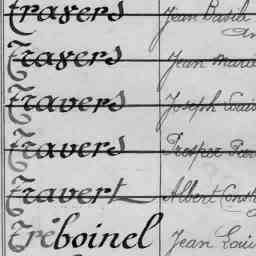 Travers Jean Basile
Travers Jean Marie
Travers Joseph Louis
Travers Prosper
Travert Albert Const
Tréboinel Jean Loui